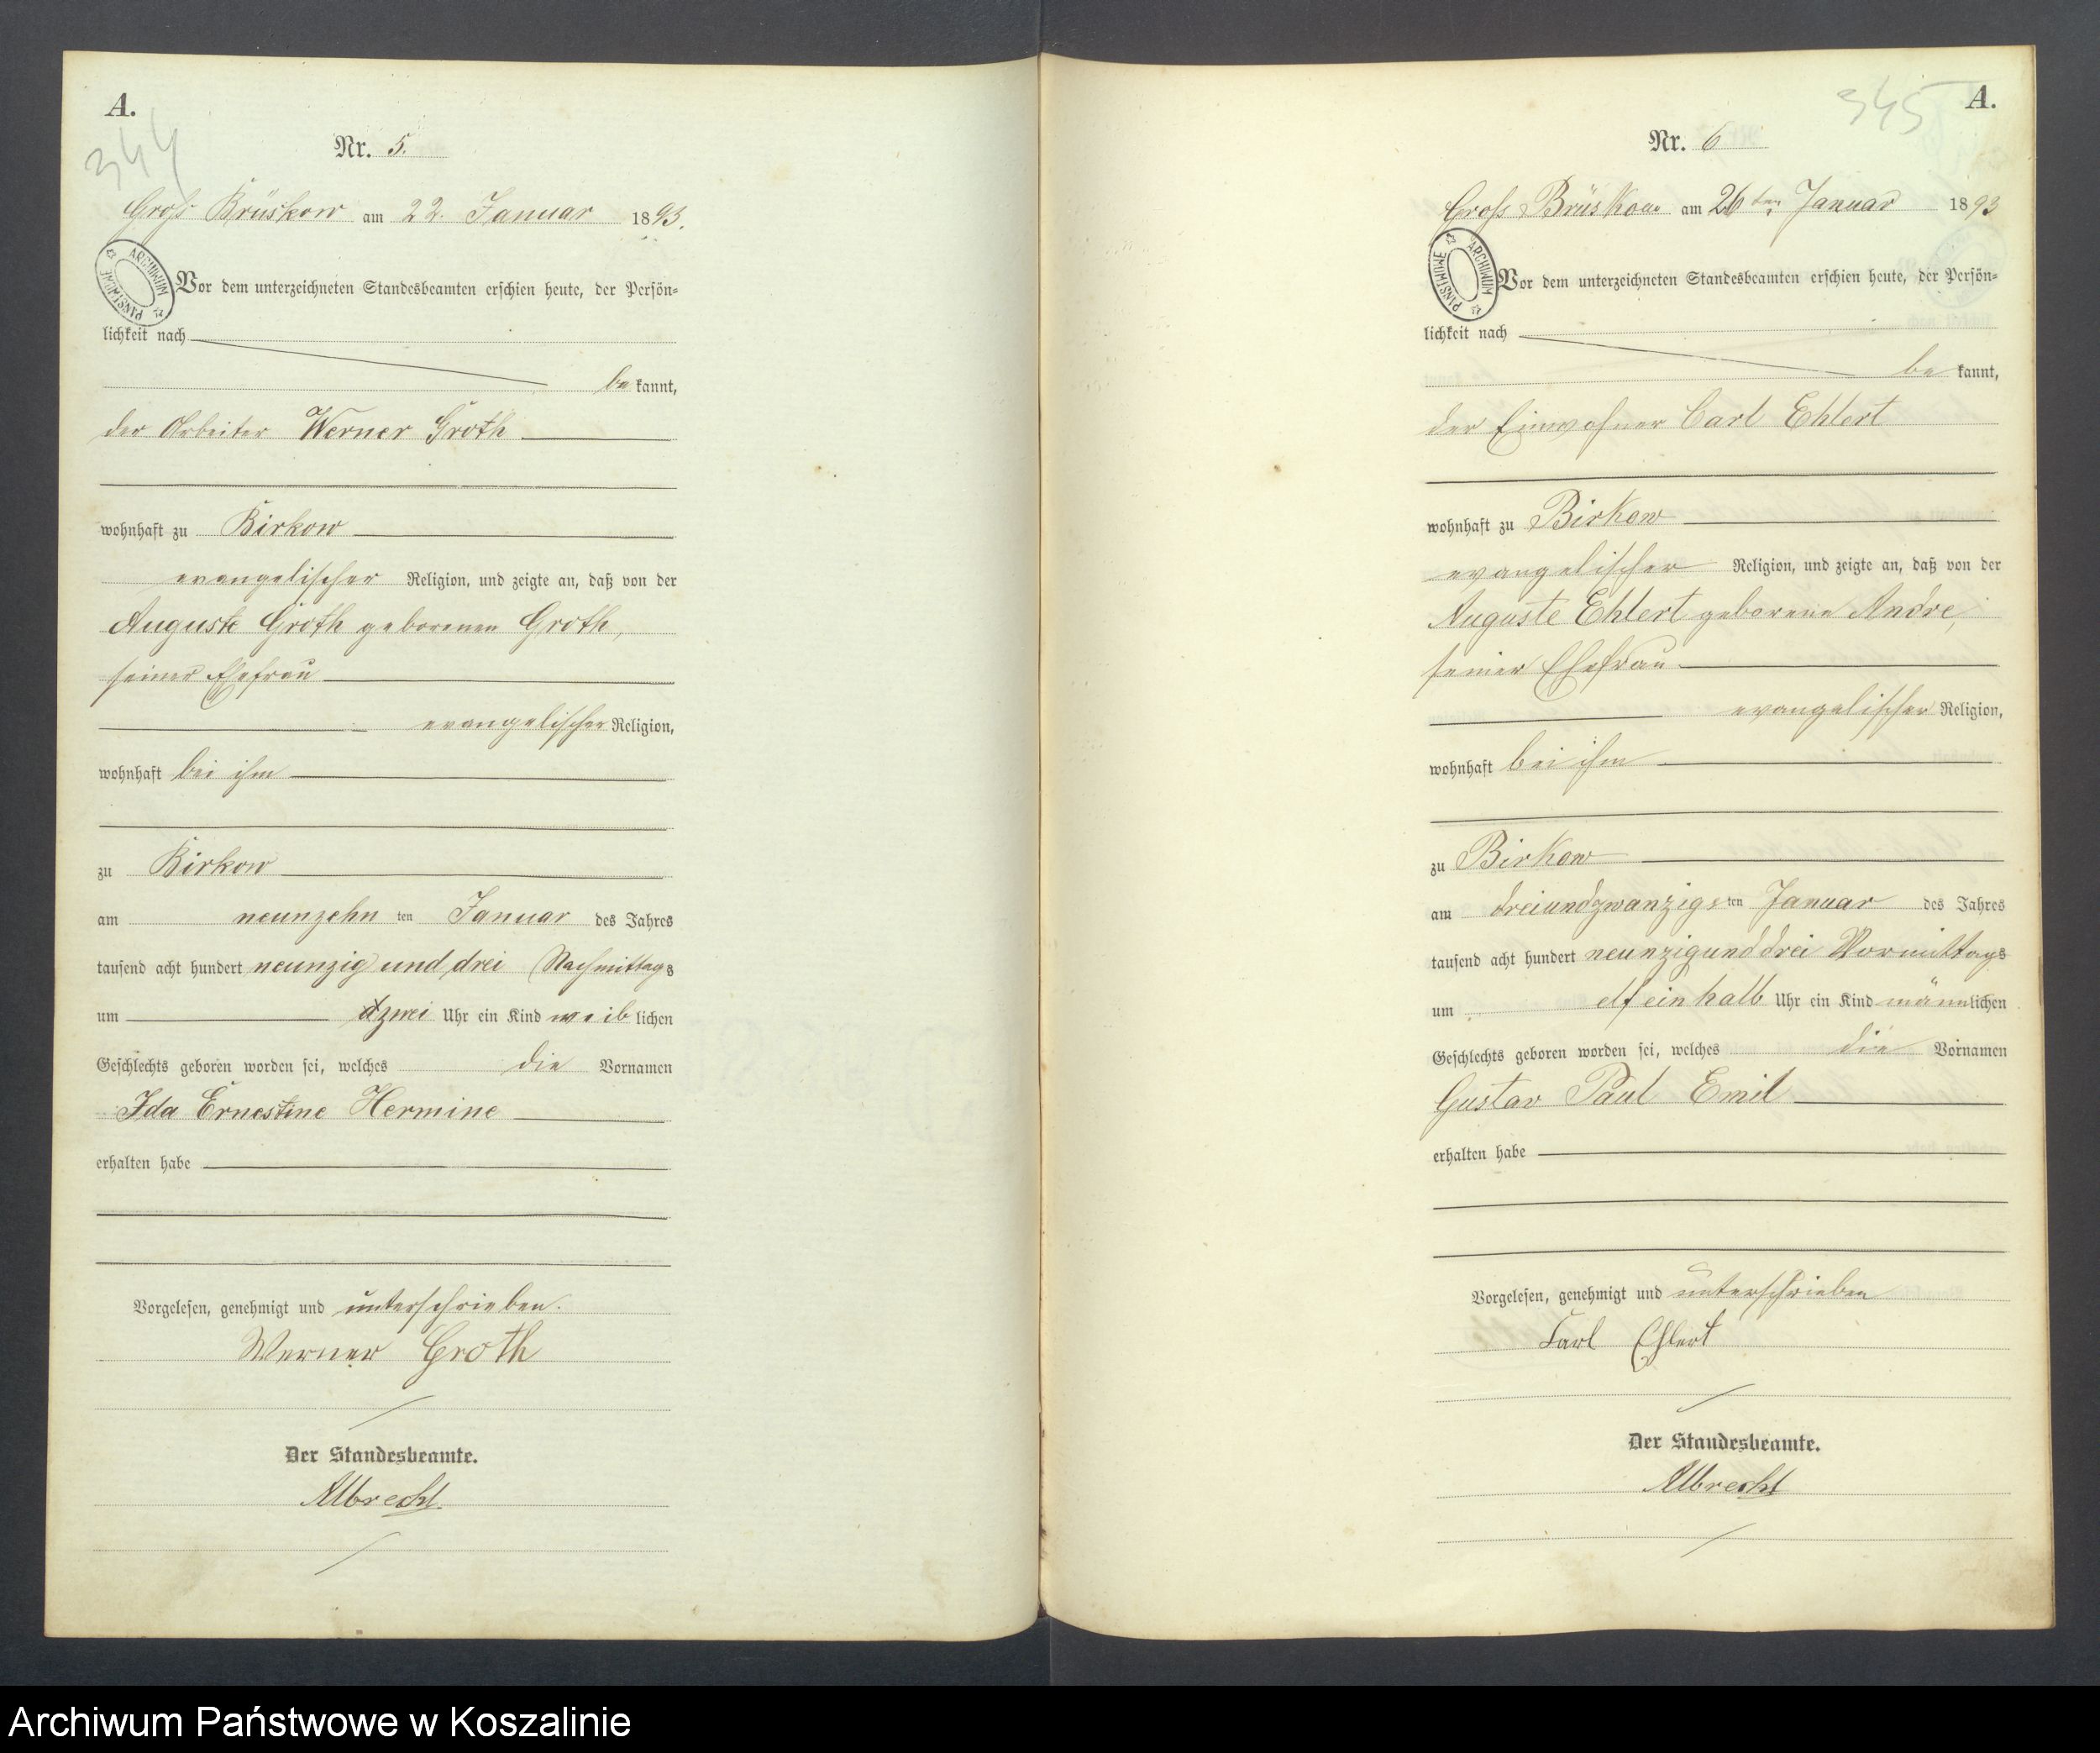 A.
344
Nr. 5.
Groß Brüskow am 22. Januar 1893.
ARCHIWUM PAŃSTWOWE
Vor dem unterzeichneten Standesbeamten erschien heute, der Persön-
lichkeit nach
be kannt,
der Arbeiter Werner Groth
wohnhaft zu Birkow
evangelischer Religion, und zeigte an, daß von der
Auguste Groth geborenen Groth,
seiner Ehefrau
evangelischer Religion,
wohnhaft bei ihm
zu Birkow
am neunzehn ten Januar des Jahres
tausend acht hundert neunzig und drei Nachmittags
um zwei Uhr ein Kind weib lichen
Geschlechts geboren worden sei, welches die Vornamen
Ida Ernestine Hermine
erhalten habe
Vorgelesen, genehmigt und unterschrieben.
Werner Groth
Der Standesbeamte.
Albrecht.
A.
345
Nr. 6
Groß Brüskow am 26ten Januar 1893
ARCHIWUM PAŃSTWOWE
Vor dem unterzeichneten Standesbeamten erschien heute, der Persön-
lichkeit nach
be kannt,
der Einwohner Carl Ehlert
wohnhaft zu Birkow
evangelischer Religion, und zeigte an, daß von der
Auguste Ehlert geborene Andre,
seiner Ehefrau
evangelischer Religion,
wohnhaft bei ihm
zu Birkow
am dreiundzwanzigs ten Januar des Jahres
tausend acht hundert neunzigunddrei Vormittags
um elf ein halb Uhr ein Kind männlichen
Geschlechts geboren worden sei, welches die Vornamen
Gustav Paul Emil
erhalten habe
Vorgelesen, genehmigt und unterschrieben
Carl Ehlert
Der Standesbeamte.
Albrecht
Archiwum Państwowe w Koszalinie